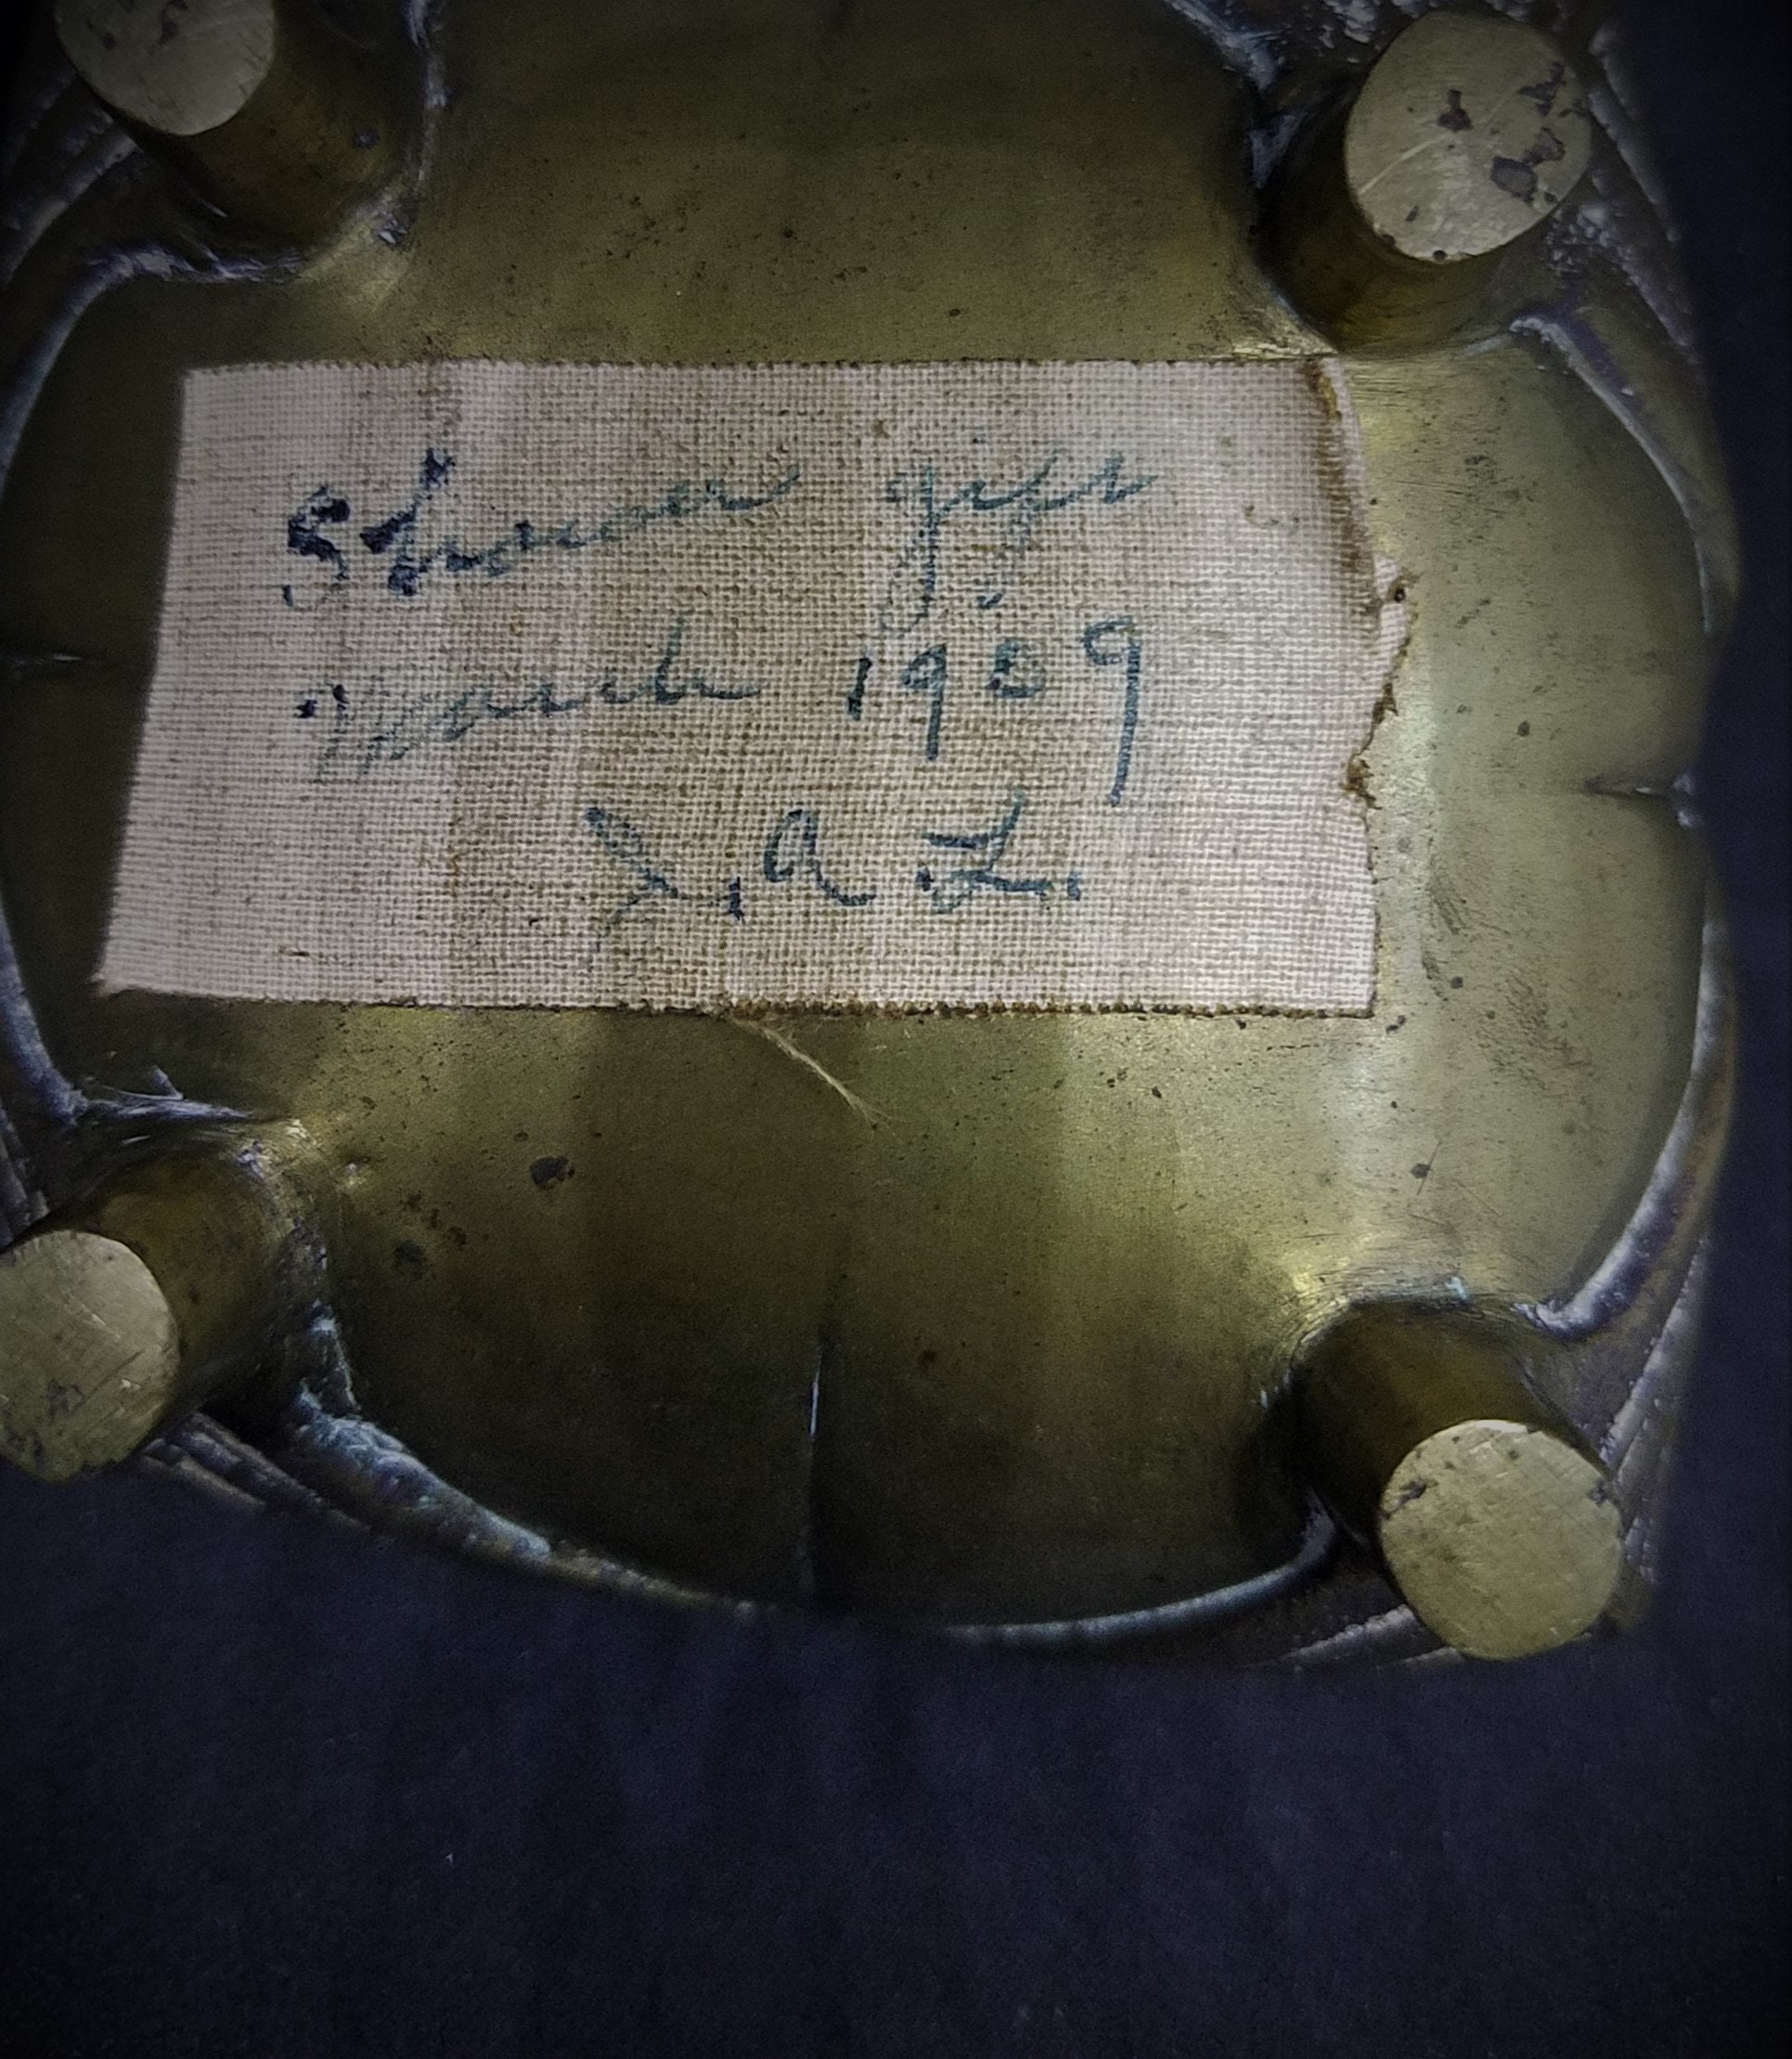 Shower gift
March 1909
J.A.L.